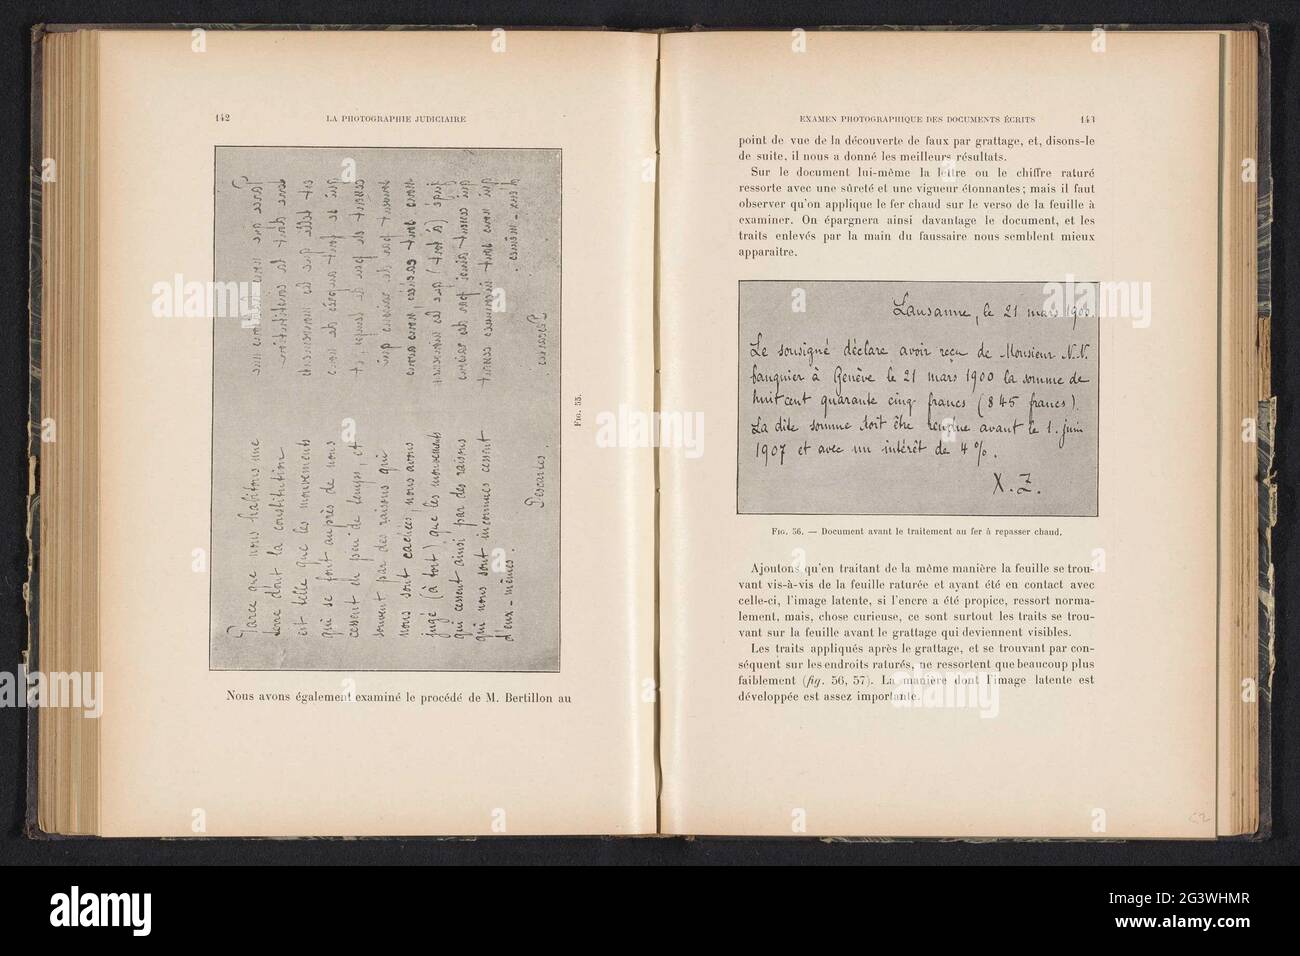 142
LA PHOTOGRAPHIE JUDICIAIRE
Parce que nous habitons une
terre dont la constitution
est telle que les mouvements
qui se font auprès de nous
cessent en peu de temps, et
souvent par des raisons qui
nous sont cachées, nous avons
jugé (à tort) que les mouvements
qui cessent ainsi par des raisons
qui nous sont inconnues cessent
d'eux-mêmes.
Descartes.
FIG. 55.
Nous avons également examiné le procédé de M. Bertillon au
EXAMEN PHOTOGRAPHIQUE DES DOCUMENTS ÉCRITS
143
point de vue de la découverte de faux par grattage, et, disons-le
de suite, il nous a donné les meilleurs résultats.
Sur le document lui-même la lettre ou le chiffre raturé
ressorte avec une sûreté et une vigueur étonnantes; mais il faut
observer qu'on applique le fer chaud sur le verso de la feuille à
examiner. On épargnera ainsi davantage le document, et les
traits enlevés par la main du faussaire nous semblent mieux
apparaitre.
Lausanne, le 21 mars 1900.
Le sousigné déclare avoir reçu de Monsieur N.N.
banquier à Genève le 21 mars 1900 la somme de
huit cent quarante cinq francs (845 francs).
La dite somme doit être rendue avant le 1. juin
1907 et avec un intérêt de 4 %.
X. Z.
FIG. 56. — Document avant le traitement au fer à repasser chaud.
Ajoutons qu'en traitant de la même manière la feuille se trou-
vant vis-à-vis de la feuille raturée et ayant été en contact avec
celle-ci, l'image latente, si l'encre a été propice, ressort norma-
lement, mais, chose curieuse, ce sont surtout les traits se trou-
vant sur la feuille avant le grattage qui deviennent visibles.
Les traits appliqués après le grattage, et se trouvant par con-
séquent sur les endroits raturés, ne ressortent que beaucoup plus
faiblement (fig. 56, 57). La manière dont l'image latente est
développée est assez importante.
alamy
Image ID: 2G3WHMR
www.alamy.com